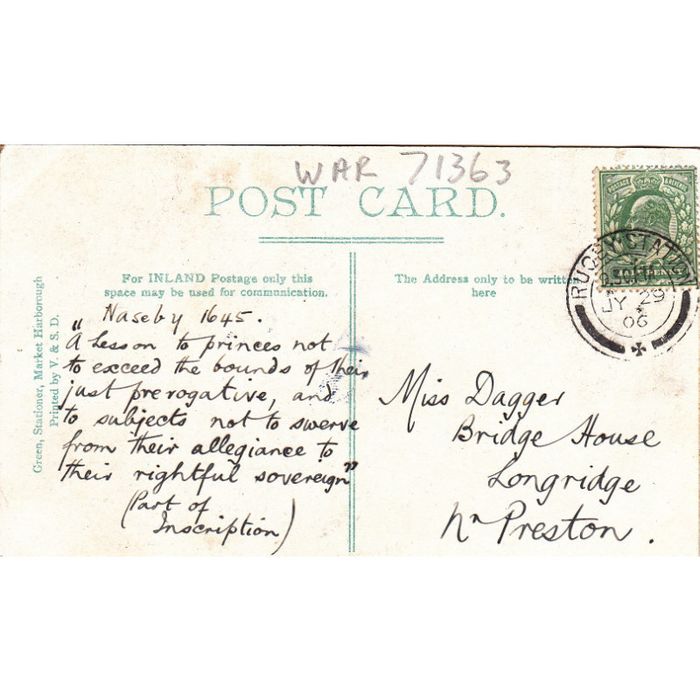 WAR 71363
POST CARD.
For INLAND Postage only this
space may be used for communication.
The Address only to be written
here
POSTAGE
HALFPENNY
RUGBY STATION
JY 29
06
Green, Stationer, Market Harborough
Printed by V. & S. D.
Naseby 1645.
"A lesson to princes not
to exceed the bounds of their
just prerogative, and
to subjects not to swerve
from their allegiance to
their rightful sovereign"
(Part of
Inscription)
Miss Dagger
Bridge House
Longridge
Nr Preston.